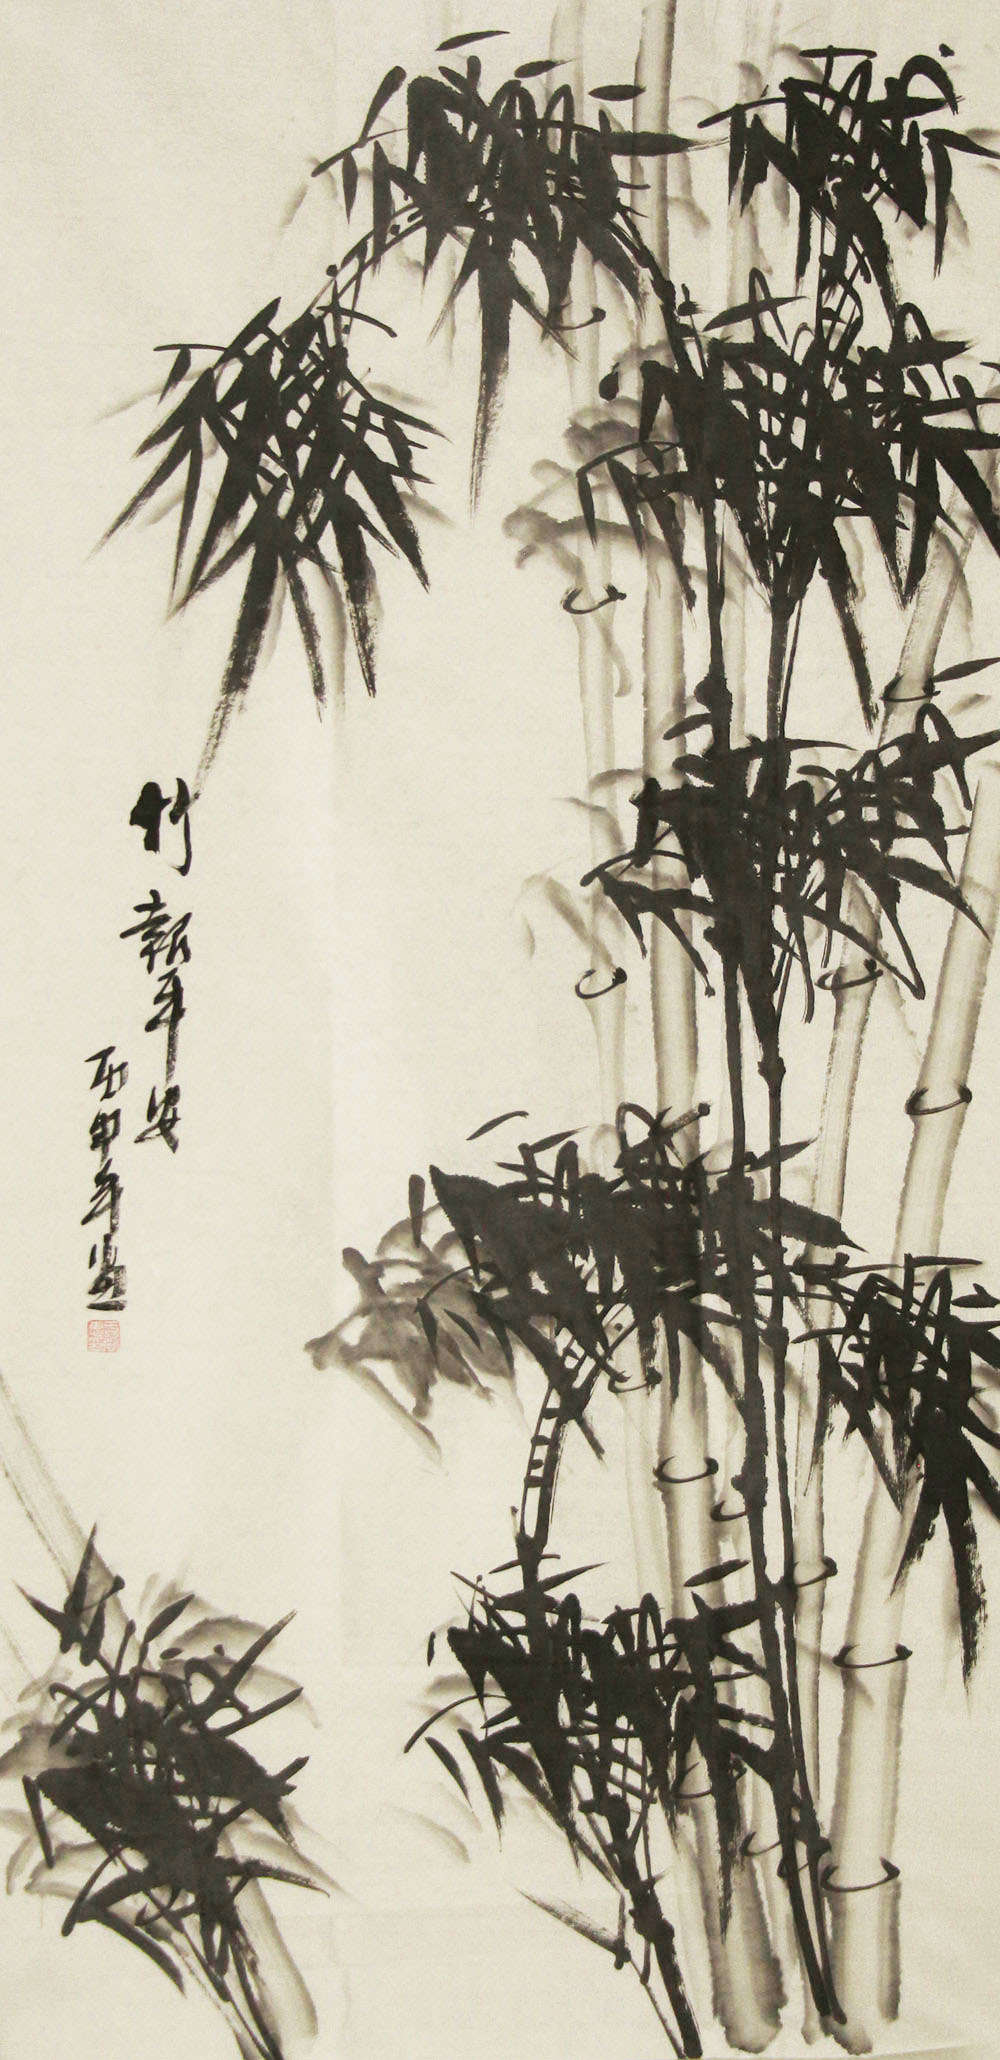 竹報平安
丙申年